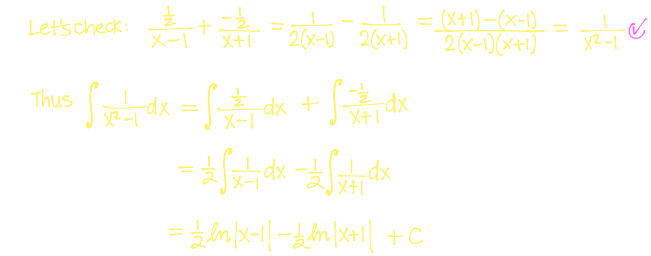 Let's check: \frac{\frac{1}{2}}{x-1} + \frac{-\frac{1}{2}}{x+1} = \frac{1}{2(x-1)} - \frac{1}{2(x+1)} = \frac{(x+1)-(x-1)}{2(x-1)(x+1)} = \frac{1}{x^2-1} ✓
Thus \int \frac{1}{x^2-1} dx = \int \frac{\frac{1}{2}}{x-1} dx + \int \frac{-\frac{1}{2}}{x+1} dx
= \frac{1}{2} \int \frac{1}{x-1} dx - \frac{1}{2} \int \frac{1}{x+1} dx
= \frac{1}{2} ln|x-1| - \frac{1}{2} ln|x+1| + C